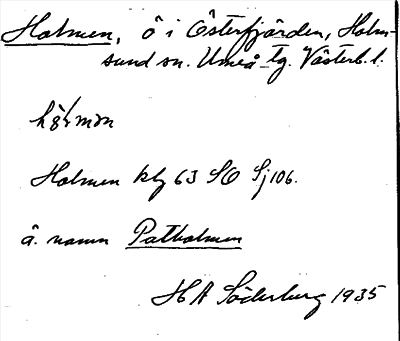 Holmen, ö i Österfjärden, Holm-
sund sn. Umeå tg. Västerb. l.
Holmen klg 63 SO Sj 106.
a. namn Patholmen
H A Söderberg 1935